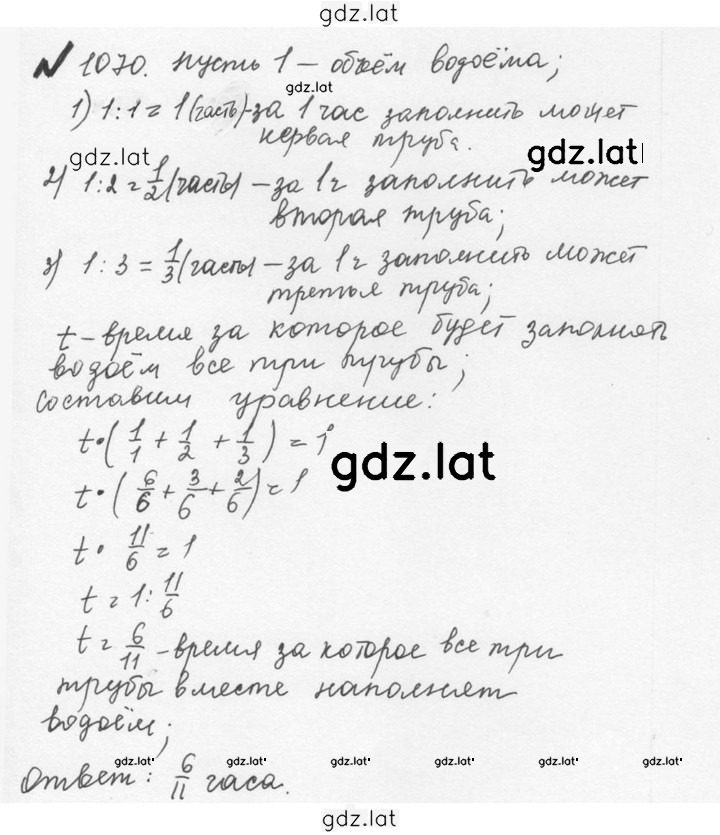 gdz.lat
№ 1070. Пусть 1 – объём водоёма;
gdz.lat
1) 1:1 = 1 (часть) - за 1 час заполнить может
первая труба.
gdz.lat gdz.lat
2) 1:2 = 1/2 (часть) – за 1ч заполнить может
вторая труба;
3) 1:3 = 1/3 (часть) – за 1ч заполнить может
третья труба;
t – время за которое будет заполнять
водоём все три трубы;
составим уравнение:
t·(1/1 + 1/2 + 1/3) = 1
gdz.lat
t·(6/6 + 3/6 + 2/6) = 1
t · 11/6 = 1
t = 1: 11/6
t = 6/11 - время за которое все три
трубы вместе наполняет
водоём;
gdz.lat gdz.lat gdz.lat gdz.lat gdz.lat gdz.lat
Ответ: 6/11 часа.
gdz.lat